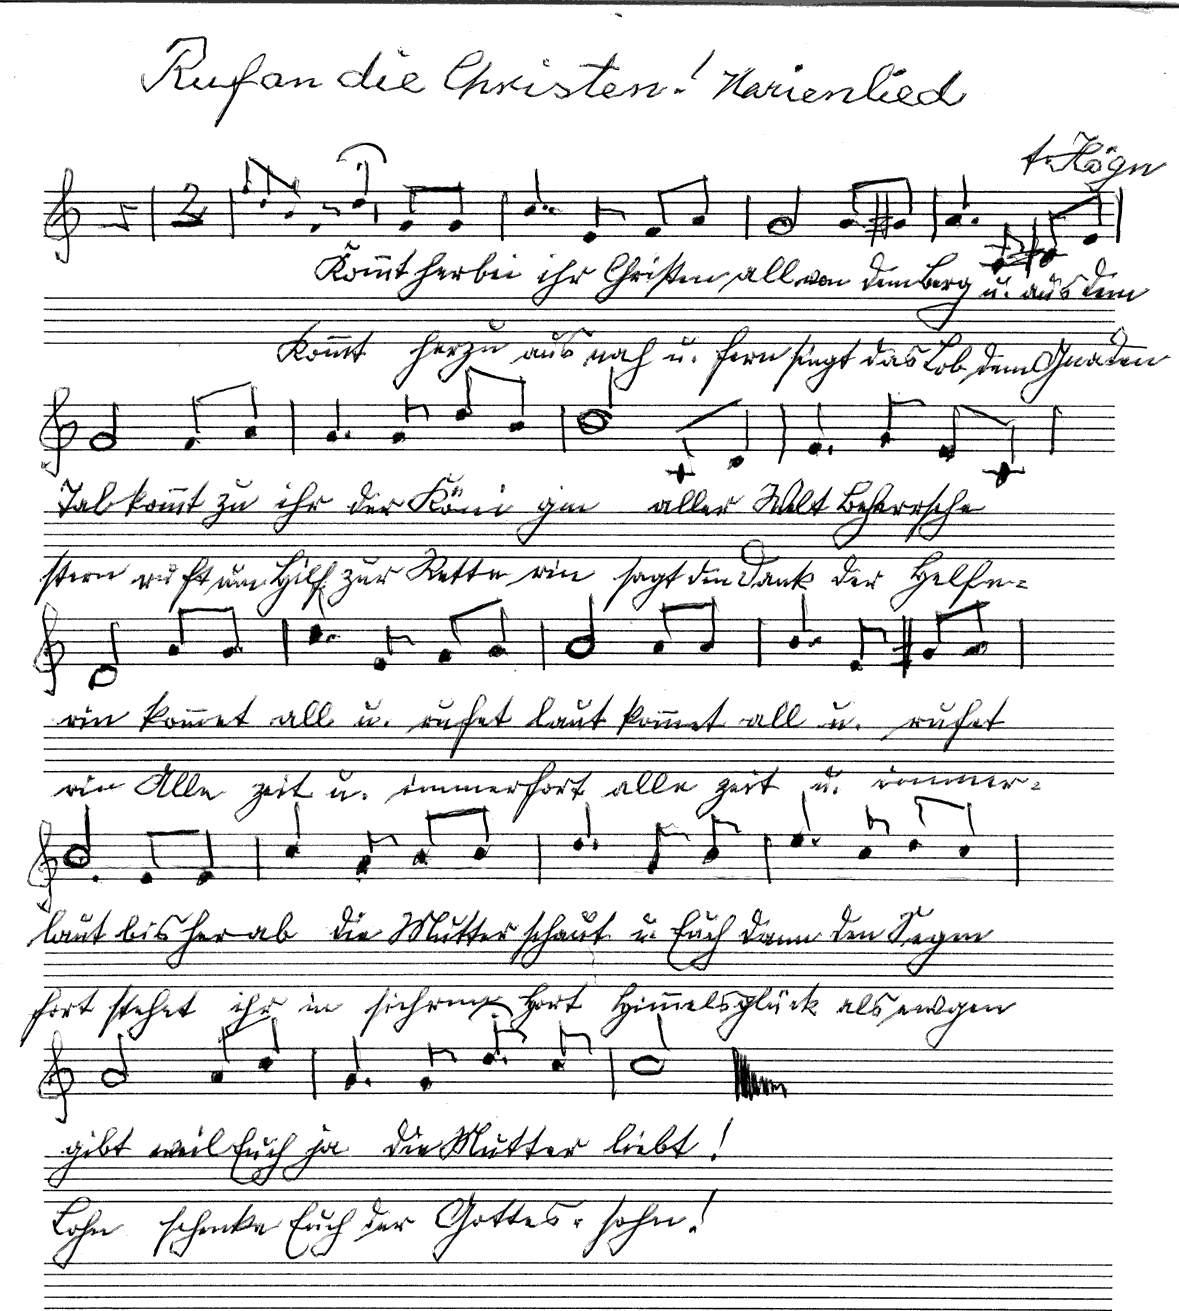 Ruf an die Christen! Marienlied
A. Högn
Kom̄t herbei ihr Christen all von dem Berg u. aus dem
Kom̄t herzu aus nah u. fern singt das Lob dem Gnaden
Tal kom̄t zu ihr der Köni gin aller Welt Beherrsche
stern ruft um Hilf zur Rette rin sagt den Dank der Helfe-
rin kom̄et all u. rufet laut kom̄et all u. rufet
rin Alle zeit u. immerfort alle zeit u. immer-
laut bis herab die Mutter schaut u. Euch dann den Segen
fort stehet ihr in sichrem Hort Him̄elsglück als ewgen
gibt weil Euch ja die Mutter liebt!
Lohn schenke Euch der Gottes-sohn!